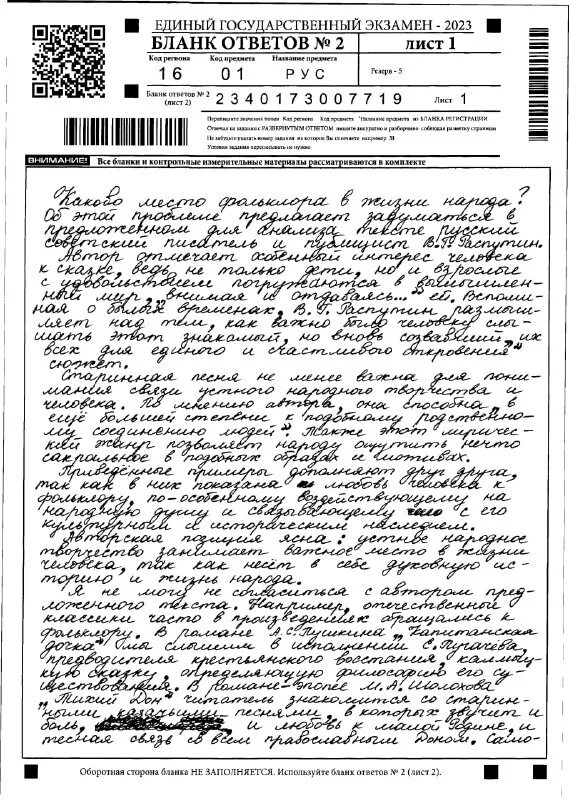 ЕДИНЫЙ ГОСУДАРСТВЕННЫЙ ЭКЗАМЕН - 2023
БЛАНК ОТВЕТОВ № 2 лист 1
Код региона Код предмета Название предмета
16 01 РУС Резерв - 5
Бланк ответов № 2 (лист 2) 2340173007719 Лист 1
Перепишите значения полей Код региона Код предмета Название предмета из БЛАНКА РЕГИСТРАЦИИ
Отвечая на задания с РАЗВЕРНУТЫМ ОТВЕТОМ пишите аккуратно и разборчиво соблюдая разметку страницы
Не забудьте указать номер задания на которое Вы отвечаете например 31
Условия задания переписывать не нужно
ВНИМАНИЕ! Все бланки и контрольные измерительные материалы рассматриваются в комплекте
Каково место фольклора в жизни народа?
Об этой проблеме предлагает задуматься в
предложенном для анализа тексте русский
советский писатель и публицист В.Г. Распутин.
Автор отмечает особенный интерес человека
к сказке, ведь не только дети, но и взрослые
с удовольствием погружаются в вымышлен-
ный мир, „внимая и отдаваясь..." ей. Вспоми-
ная о былых временах, В.Г. Распутин размыш-
ляет над тем, как важно было человеку слы-
шать этот знакомый, но вновь созвавший „их
всех для единого и счастливого откровения"
сюжет.
Старинная песня не менее важна для пони-
мания связи устного народного творчества и
человека. По мнению автора, она способна „в
ещё большей степени к подобному родственно-
му соединению людей". Также этот лиричес-
кий жанр позволяет народу ощутить нечто
сакральное в подобных образах и мотивах.
Приведённые примеры дополняют друг друга,
так как в них показана любовь человека к
фольклору, по-особенному воздействующему на
народную душу и связывающему его с его
культурным и историческим наследием.
Авторская позиция ясна: устное народное
творчество занимает важное место в жизни
человека, так как несёт в себе духовную ис-
торию и жизнь народа.
Я не могу не согласиться с автором пред-
ложенного текста. Например, отечественные
классики часто в произведениях обращались к
фольклору. В романе А.С. Пушкина „Капитанская
дочка" мы слышим в исполнении Е. Пугачёва,
предводителя крестьянского восстания, калмыц-
кую сказку, определяющую философию его су-
ществования. В романе-эпопее М.А. Шолохова
„Тихий Дон" читатель знакомится со старин-
ными казачьими песнями, в которых звучит и
боль, и любовь к малой Родине, и
тесная связь со всем православным Доном. Само-
Оборотная сторона бланка НЕ ЗАПОЛНЯЕТСЯ. Используйте бланк ответов № 2 (лист 2).